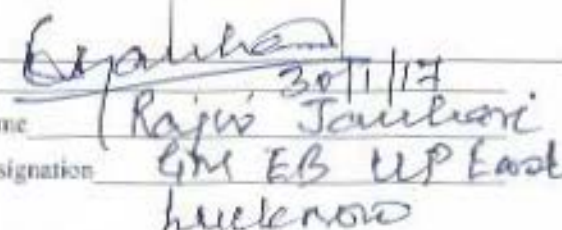 30/1/17
me Rajiv Jauhari
signation GM EB UP East
Lucknow